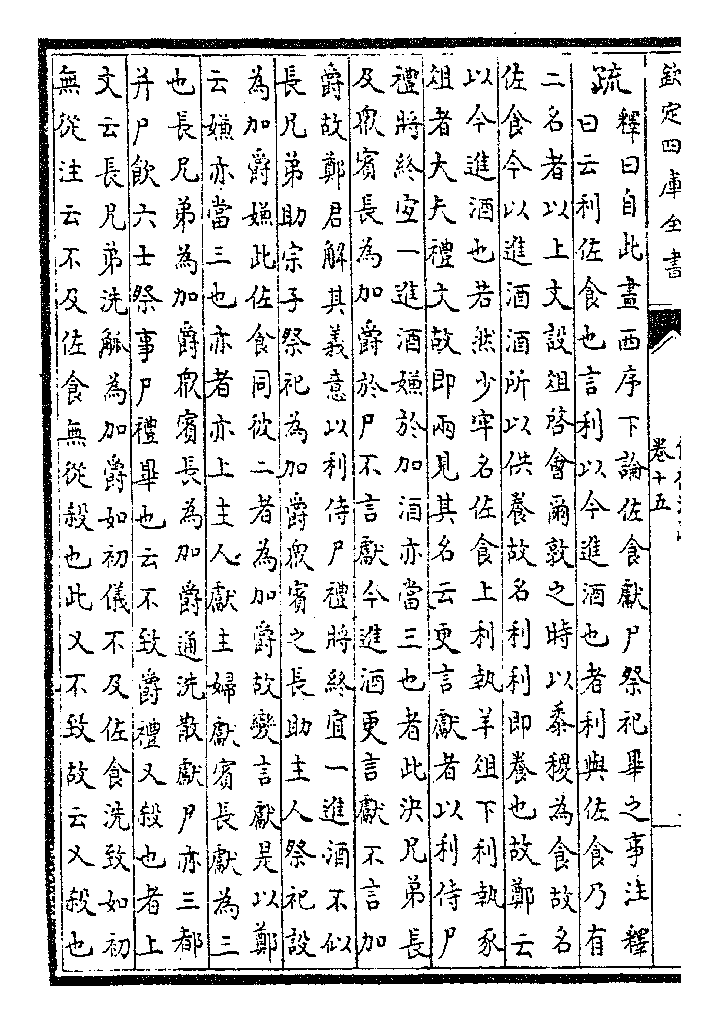 欽定四庫全書
卷十五
疏
釋曰自此盡西序下論佐食獻尸祭祀畢之事注釋
曰云利佐食也言利以今進酒也者利與佐食乃有
二名者以上文設俎啓會爾敦之時以黍稷為食故名
佐食今以進酒酒所以供養故名利利即養也故鄭云
以今進酒也若然少牢名佐食上利執羊俎下利執豕
俎者大夫禮文故即兩見其名云更言獻者以利侍尸
禮將終宜一進酒嫌於加酒亦當三也者此決兄弟長
及眾賓長為加爵於尸不言獻今進酒更言獻不言加
爵故鄭君解其義意以利侍尸禮將終宜一進酒不似
長兄弟助宗子祭祀為加爵眾賓之長助主人祭祀設
為加爵嫌此佐食同彼二者為加爵故變言獻是以鄭
云嫌亦當三也亦者亦上主人獻主婦獻賓長獻為三
也長兄弟為加爵眾賓長為加爵通洗散獻尸亦三都
并尸飲六士祭事尸禮畢也云不致爵禮又殺也者上
文云長兄弟洗觚為加爵如初儀不及佐食洗致如初
無從注云不及佐食無從殺也此又不致故云又殺也